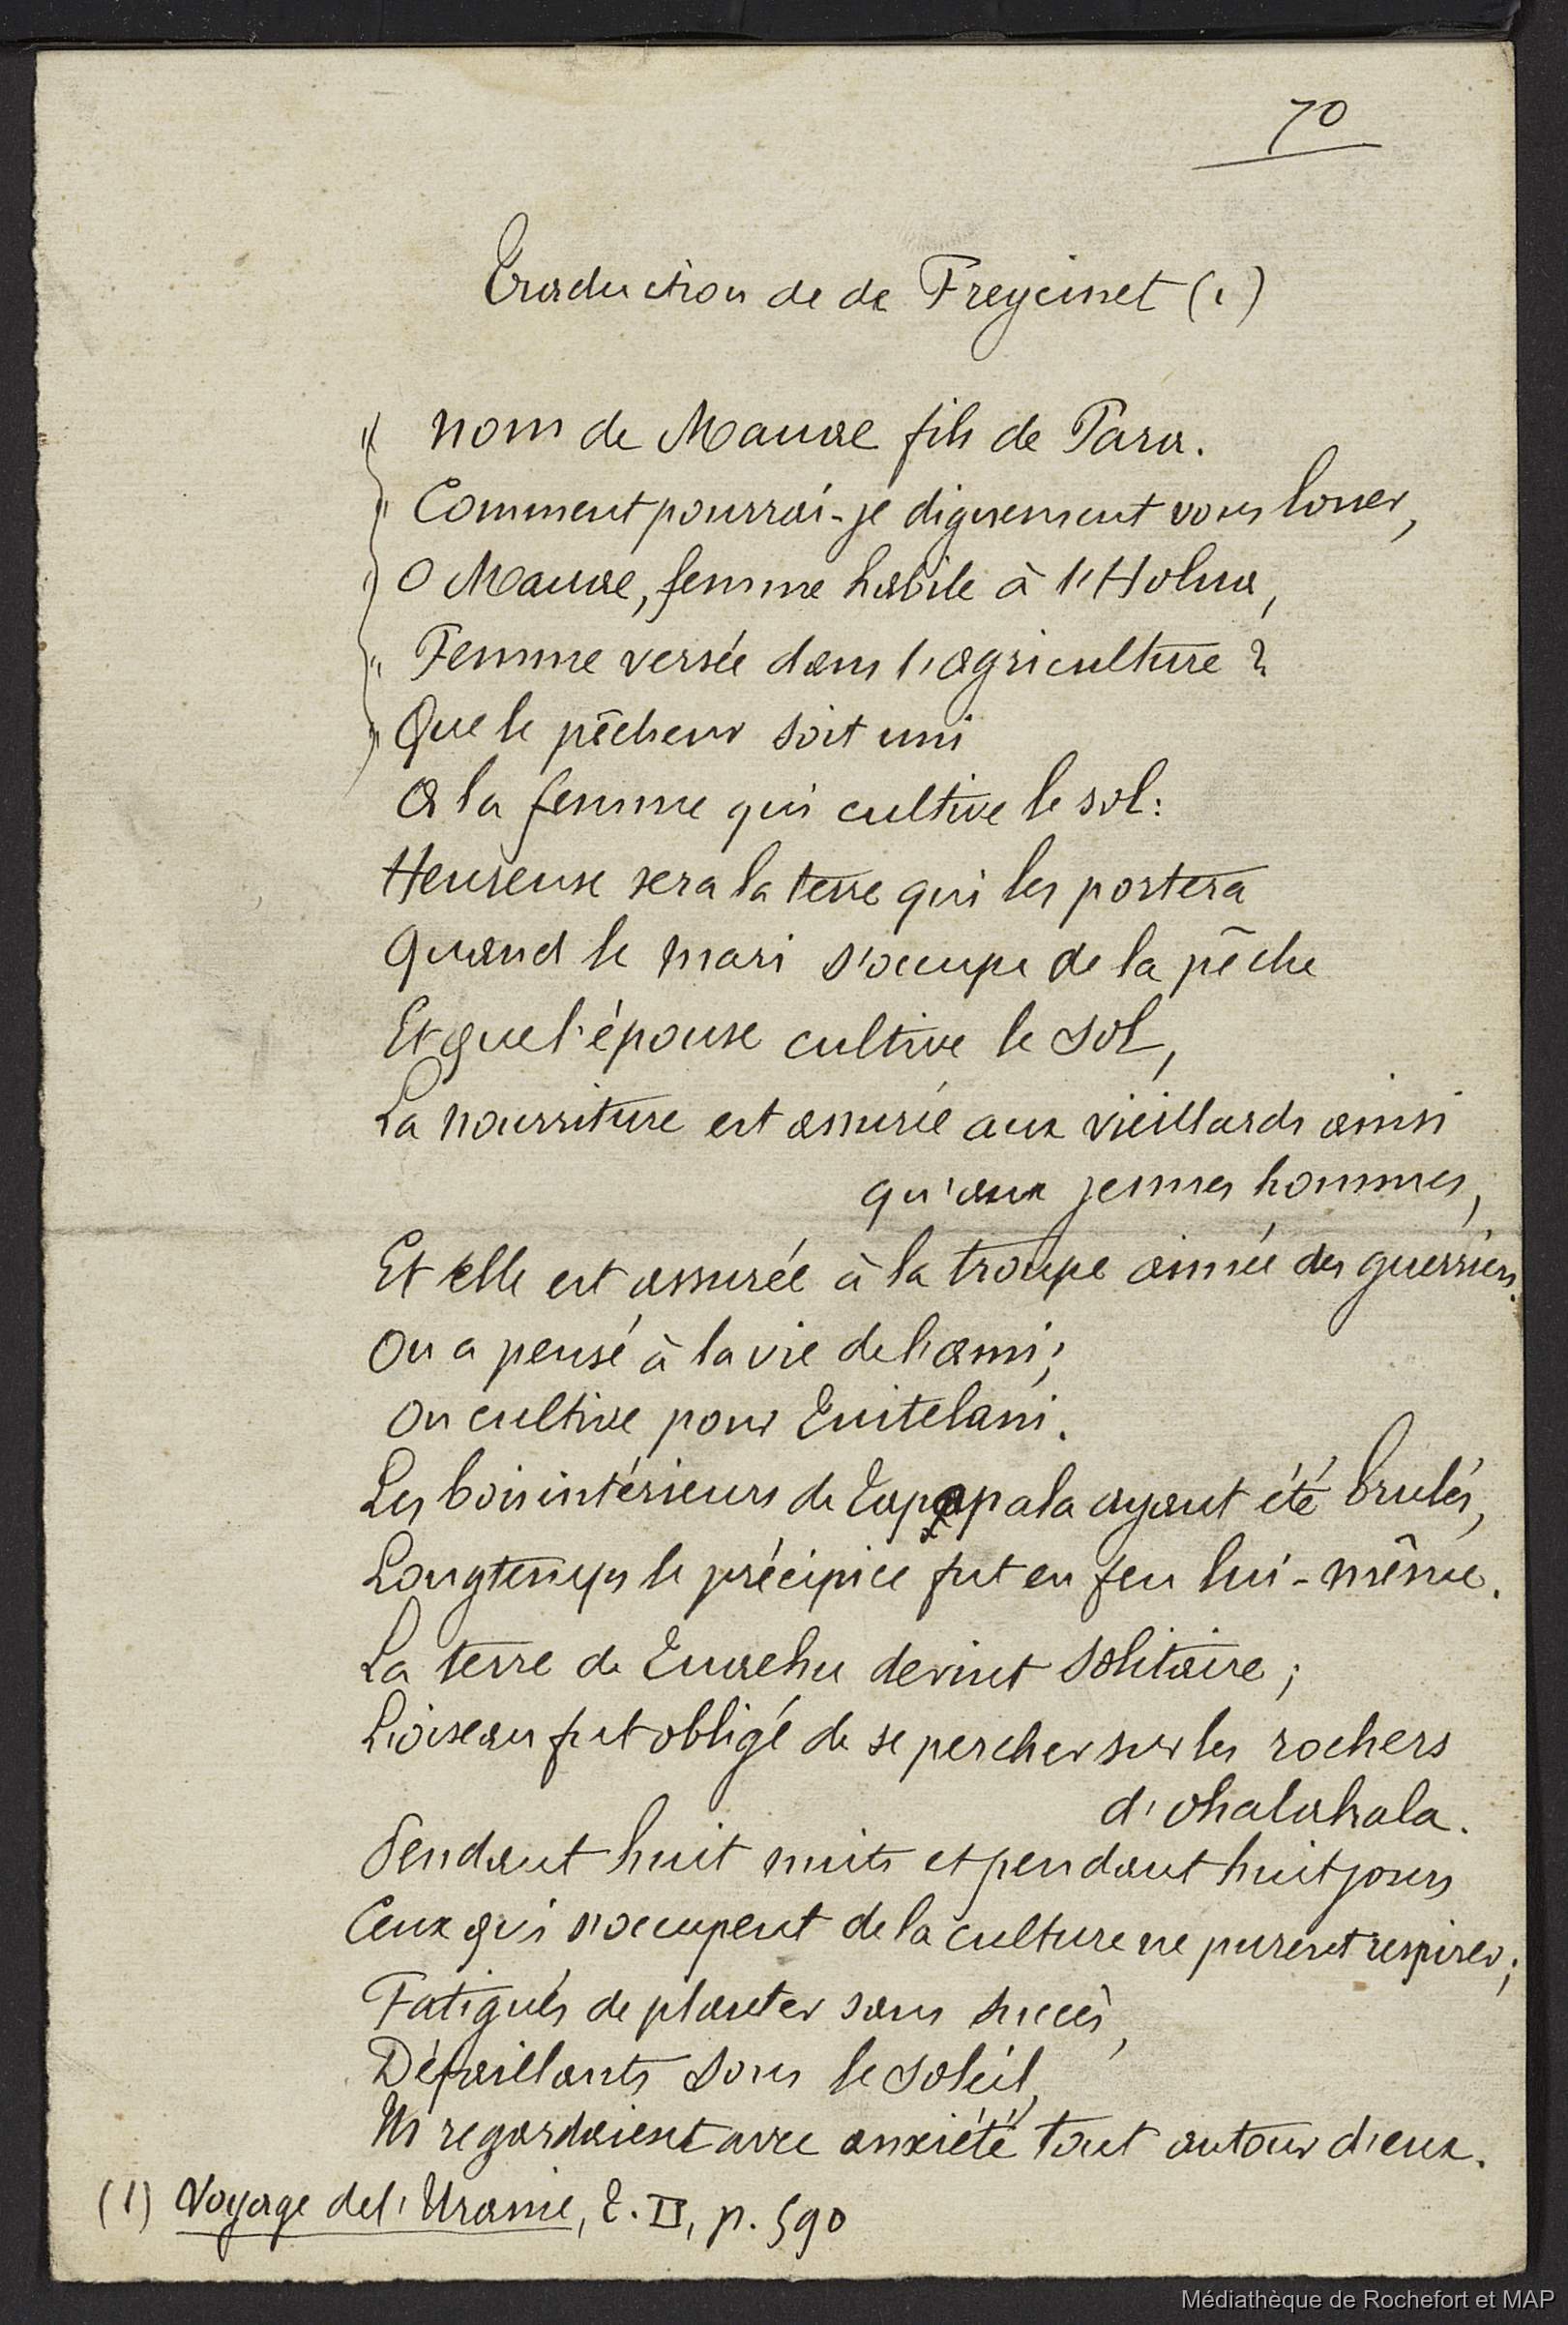 70
Traduction de de Freycinet (1)
" nom de Mauae fils de Para.
" Comment pourrai-je dignement vous louer,
" O Mauae, femme habile à l'Holua,
" Femme versée dans l'agriculture ?
" Que le pêcheur soit uni
A la femme qui cultive le sol :
Heureuse sera la terre qui les portera
Quand le mari s'occupe de la pêche
Et que l'épouse cultive le sol,
La nourriture est assurée aux vieillards ainsi
qu'aux jeunes hommes,
Et elle est assurée à la troupe aimée des guerriers.
On a pensé à la vie de l'ami ;
On cultive pour Tuitelani.
Les bois intérieurs de Tapapala ayant été brulés,
Longtemps le précipice fut en feu lui-même.
La terre de Tuaehu devint solitaire ;
L'oiseau fut obligé de se percher sur les rochers
d'Ohalahala.
Pendant huit nuits et pendant huit jours
Ceux qui s'occupent de la culture ne purent respirer ;
Fatigués de planter sans succès,
Défaillants sous le soleil,
Ils regardaient avec anxiété tout autour d'eux.
(1) Voyage de l'Uranie, T. II, p. 590
Médiathèque de Rochefort et MAP